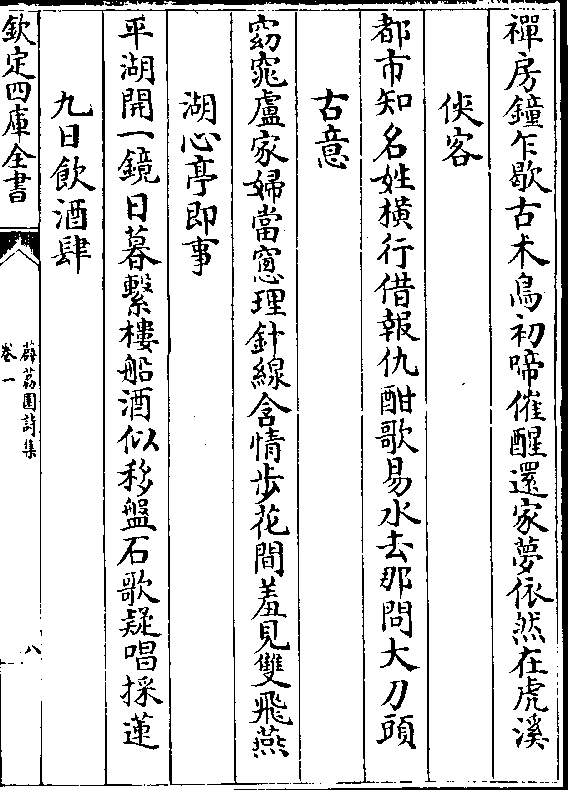 禪房鐘乍歇古木鳥初啼催醒還家夢依然在虎溪
俠客
都市知名姓橫行借報仇酣歌易水去那問大刀頭
古意
窈窕盧家婦當窻理針線含情步花間羞見雙飛燕
湖心亭即事
平湖開一鏡日暮繫樓船酒似移盤石歌疑唱採蓮
九日飲酒肆
欽定四庫全書
薜荔園詩集
卷一
八